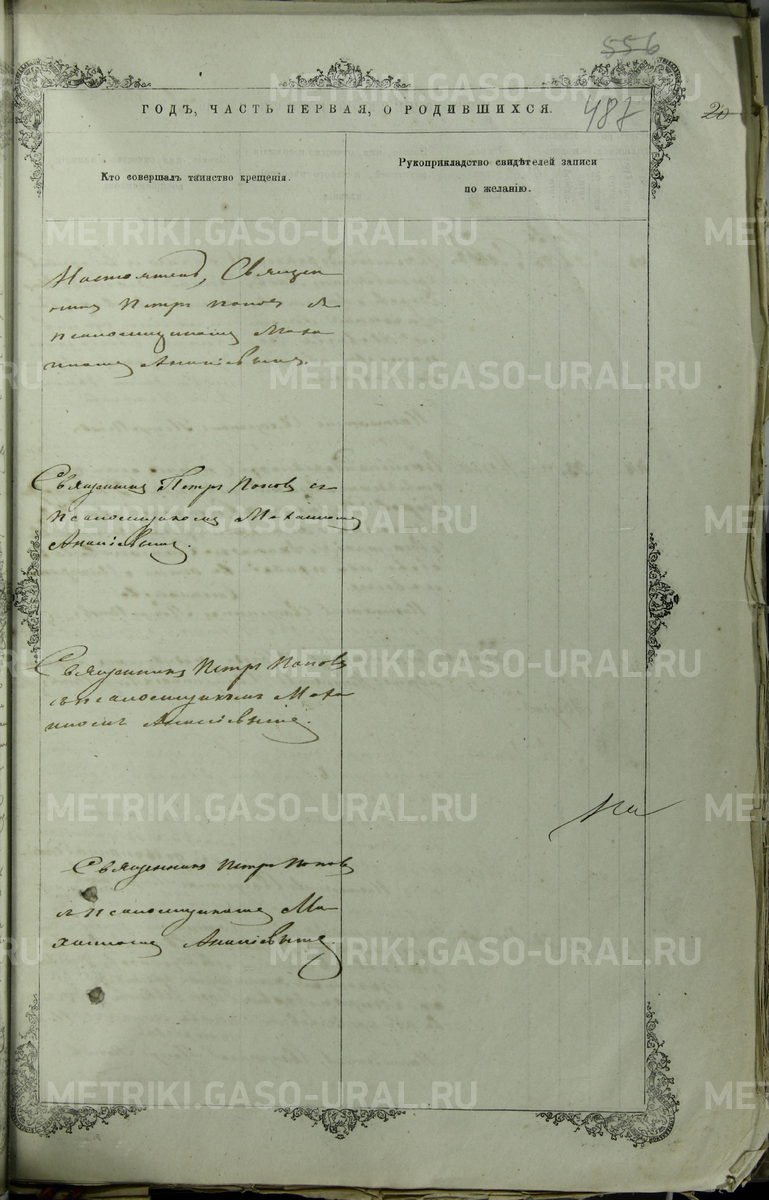 556
ГОДЪ, ЧАСТЬ ПЕРВАЯ, О РОДИВШИХСЯ.
487
20
Кто совершалъ таинство крещенія.
Рукоприкладство свидѣтелей записи
по желанію.
Настоятель, Священ-
никъ Петръ Поповъ съ
псаломщикомъ
Ананіевымъ.
Священникъ Петръ Поповъ съ
псаломщикомъ
Ананіевымъ.
Священникъ Петръ Поповъ
съ псаломщикомъ
Ананіевымъ.
Священникъ Петръ Поповъ
съ псаломщикомъ
Ананіевымъ.
METRIKI.GASO-URAL.RU